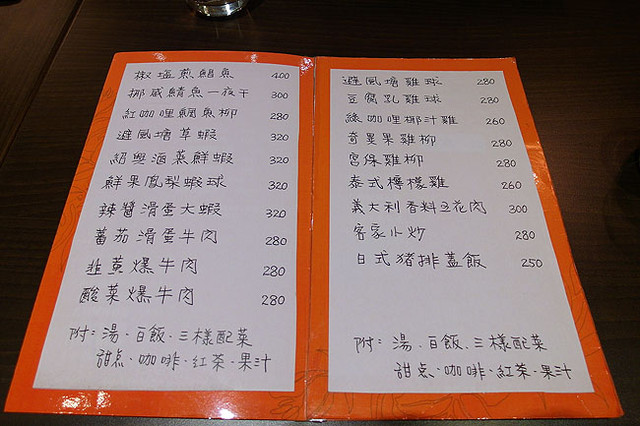 椒塩煎鯧魚 400
挪威鯖魚一夜干 300
紅咖哩鯛魚柳 280
避風塘草蝦 320
紹興酒蒸鮮蝦 320
鮮果鳳梨蝦球 320
辣醬滑蛋大蝦 320
蕃茄滑蛋牛肉 280
韭黄爆牛肉 280
酸菜爆牛肉 280
附：湯、白飯、三樣配菜
甜点、咖啡、紅茶、果汁
避風塘雞球 280
豆腐乳雞球 280
綠咖哩椰汁雞 260
奇異果雞柳 280
宮保雞柳 280
泰式檸檬雞 260
義大利香料豆花肉 300
客家小炒 280
日式豬排蓋飯 250
附：湯、白飯、三樣配菜
甜点、咖啡、紅茶、果汁